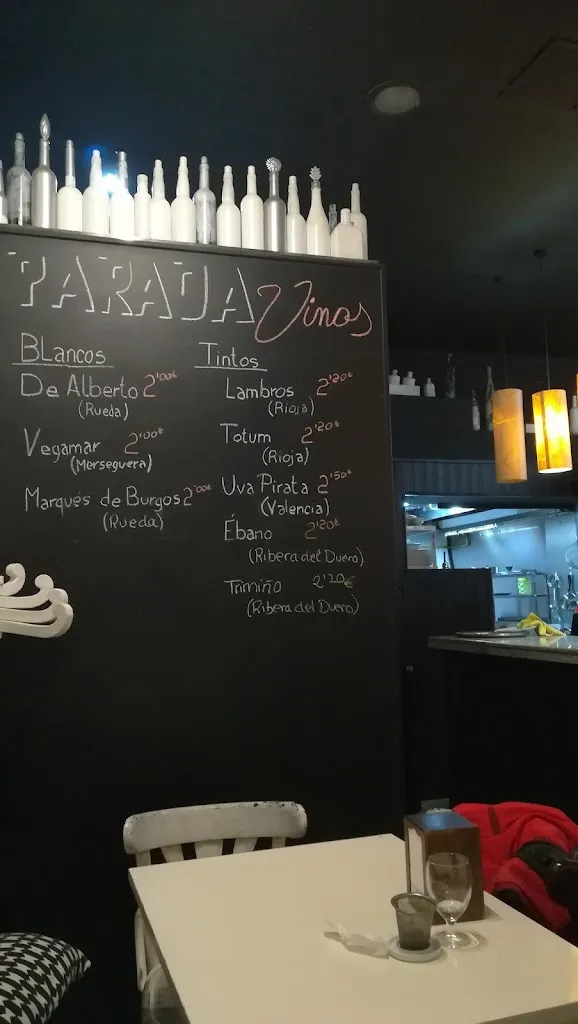 PARADA Vinos
BLancos
De Alberto 2'00€
(Rueda)
Vegamar 2'00€
(Merseguera)
Marqués de Burgos 2'00€
(Rueda)
Tintos
Lambros 2'20€
(Rioja)
Totum 2'20€
(Rioja)
Uva Pirata 2'50€
(Valencia)
Ébano 2'20€
(Ribera del Duero)
Trimiño 2'20€
(Ribera del Duero)